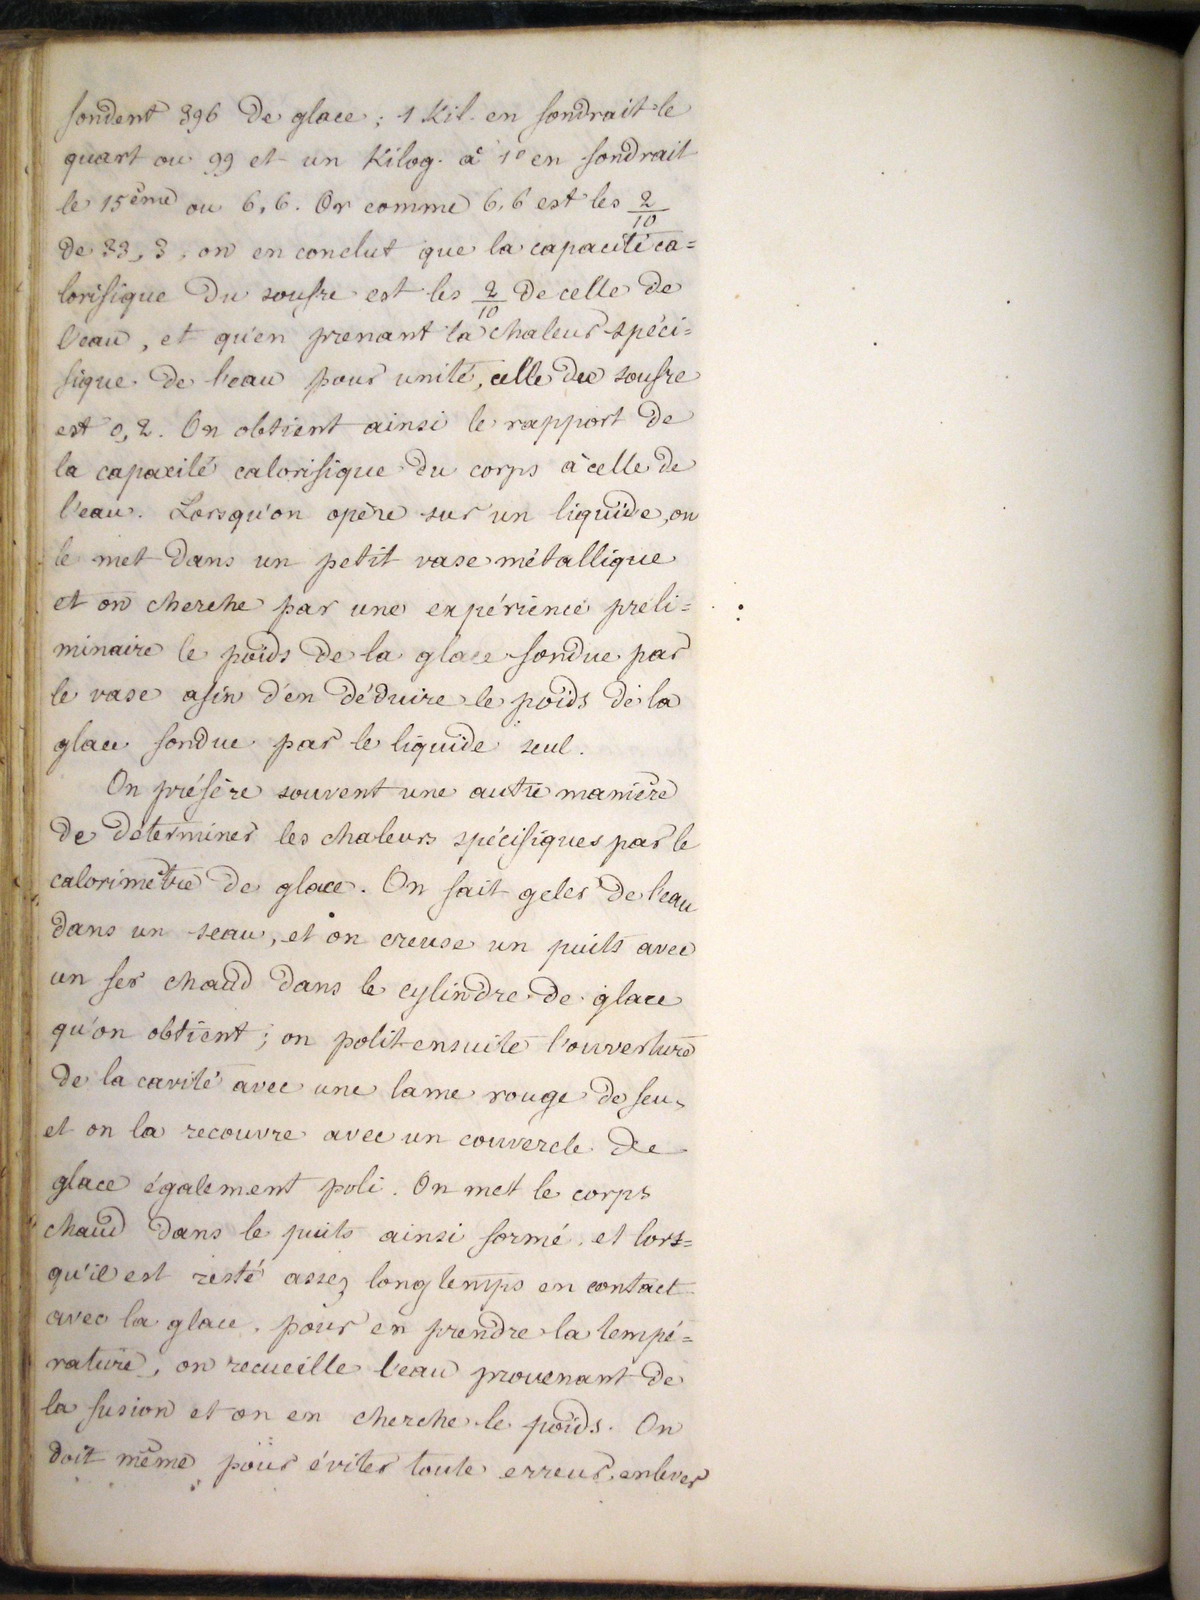 fondent 396 de glace ; 1 Kil. en fondrait le
quart ou 99 et un Kilog. à 1° en fondrait
le 15ème ou 6,6. Or comme 6,6 est les 2/10
de 33,3, on en conclut que la capacité ca=
lorifique du soufre est les 2/10 de celle de
l'eau, et qu'en prenant la chaleur spéci=
fique de l'eau pour unité, celle du soufre
est 0,2. On obtient ainsi le rapport de
la capacité calorifique du corps à celle de
l'eau. Lorsqu'on opère sur un liquide, on
le met dans un petit vase métallique
et on cherche par une expérience preli=
minaire le poids de la glace fondue par
le vase afin d'en déduire le poids de la
glace fondue par le liquide seul.
On préfère souvent une autre manière
de déterminer les chaleurs spécifiques par le
calorimètre de glace. On fait geler de l'eau
dans un seau, et on creuse un puits avec
un fer chaud dans le cylindre de glace
qu'on obtient ; on polit ensuite l'ouverture
de la cavité avec une lame rouge de feu,
et on la recouvre avec un couvercle de
glace également poli. On met le corps
chaud dans le puits ainsi formé, et lors=
qu'il est resté assez longtemps en contact
avec la glace, pour en prendre la tempé=
rature, on recueille l'eau provenant de
la fusion et on en cherche le poids. On
doit même pour éviter toute erreur, enlever